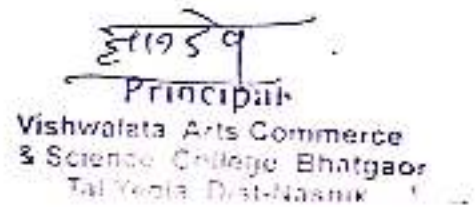 Principal
Vishwalata Arts Commerce
& Science College Bhatgaon
Tal Yeola Dist-Nasik